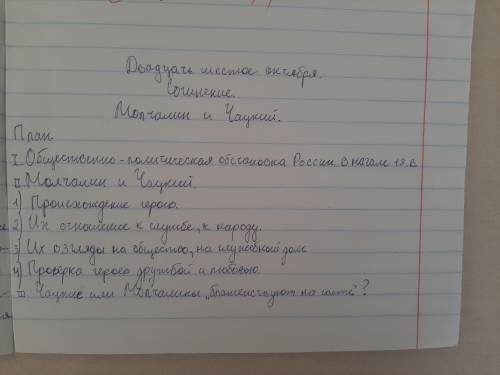 Двадцать шестое октября.
Сочинение.
Молчалин и Чацкий.
План
I. Общественно-политическая обстановка России в начале 19.в
II. Молчалин и Чацкий.
1) Происхождение героев.
2) Их отношение к службе, к народу.
3) Их взгляды на общество, на служебный долг
4) Проверка героев дружбой и любовью.
III Чацкие или Молчалины „блаженствуют на свете"?